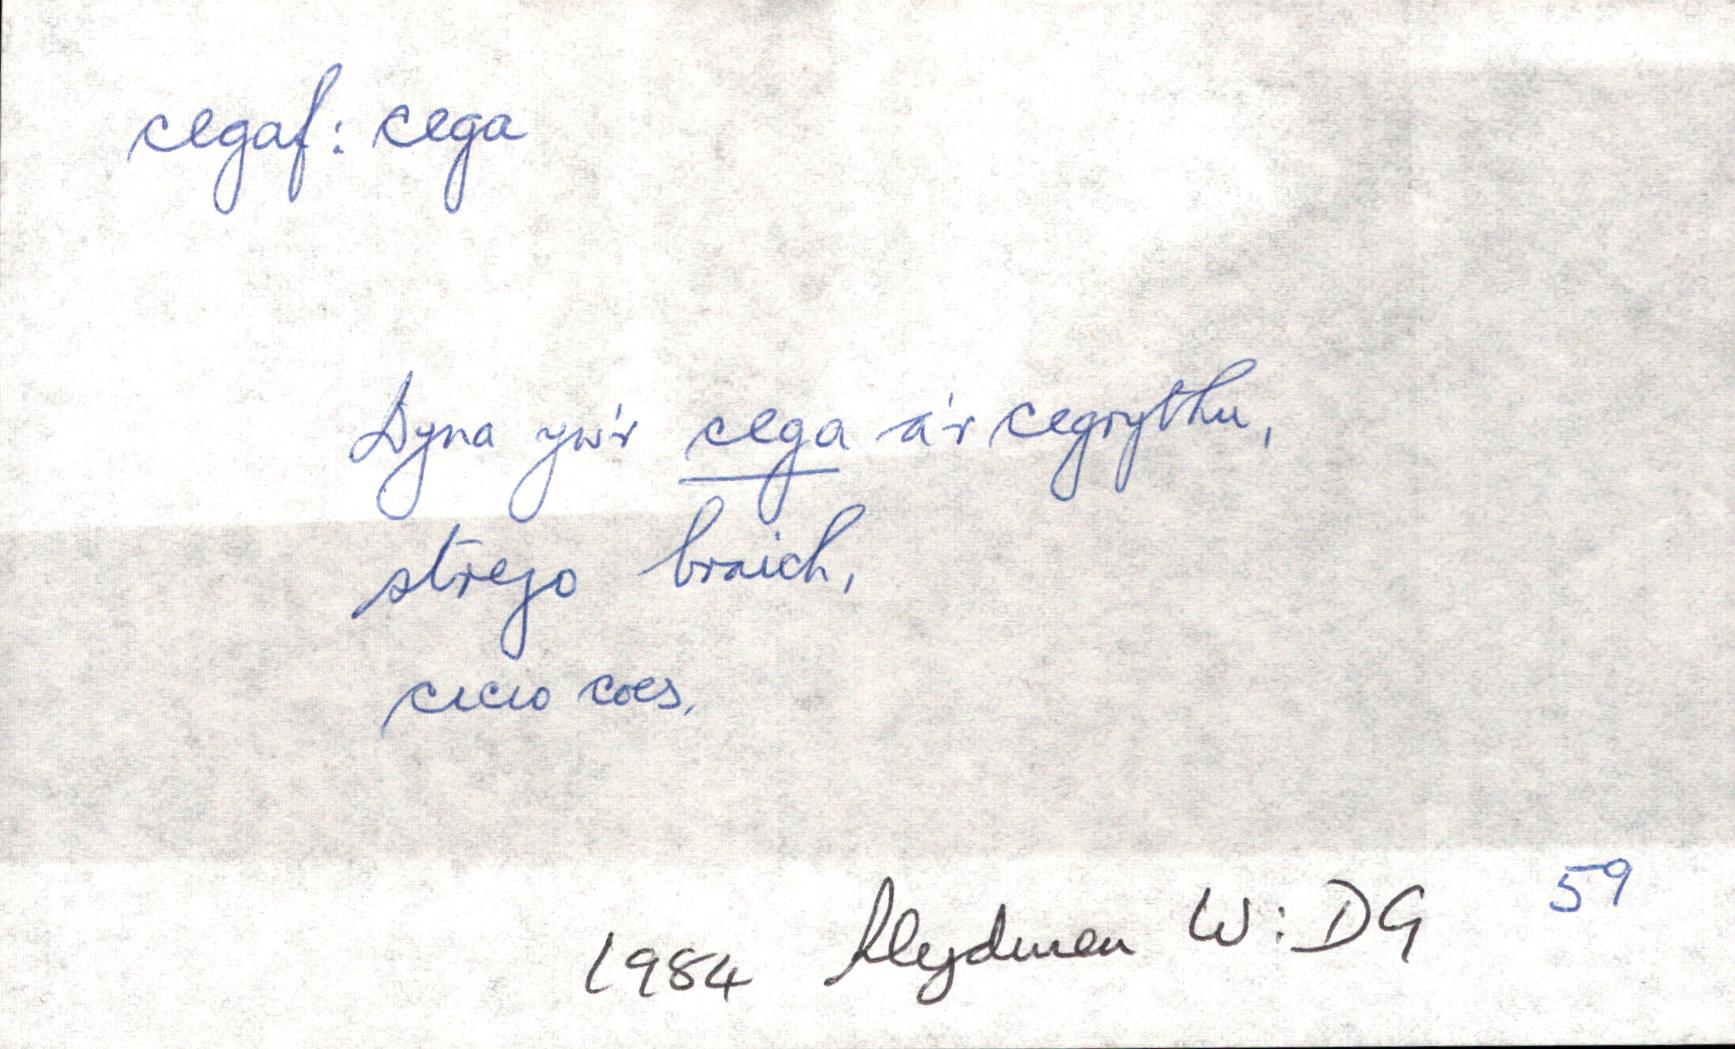 cegaf: cega
Dyna yw'r cega a'r cegrythu,
strejo braich,
cicio coes.
59
1984 Aleydmen W: DG